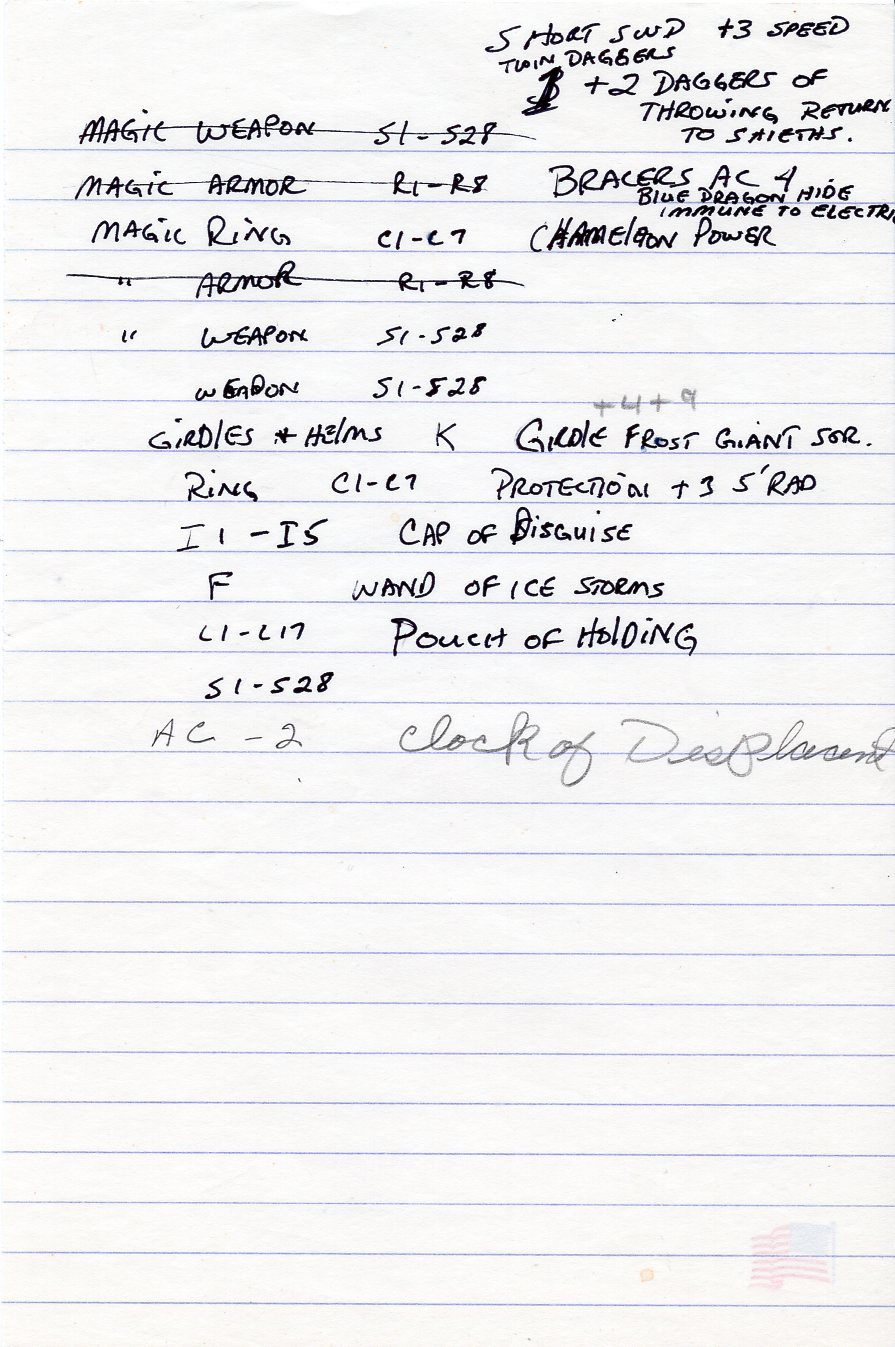 SHORT SWD +3 SPEED
TWIN DAGGERS
+2 DAGGERS OF
THROWING RETURN
TO SHIETHS.
MAGIC WEAPON S1-S28
MAGIC ARMOR R1-R8 BRACERS AC 4
BLUE DRAGON HIDE
IMMUNE TO ELECTRI
MAGIC RING C1-C7 CHAMELEON POWER
" ARMOR R1-R8
" WEAPON S1-S28
WEAPON S1-S28
+4+9
GIRDLES & HELMS K GIRDLE FROST GIANT STR.
RING C1-C7 PROTECTION +3 5' RAD
I1-I5 CAP OF DISGUISE
F WAND OF ICE STORMS
L1-L17 POUCH OF HOLDING
S1-S28
AC -2 Clock of Displacent